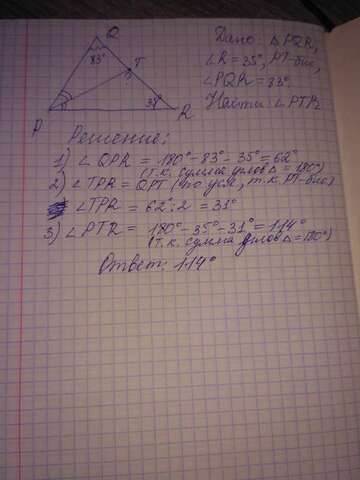 Q
83°
T
38°
P
R
Дано: △PQR,
∠R = 35°, PT-бис,
∠PQR = 83°
Найти: ∠PTR
Решение:
1) ∠QPR = 180° - 83° - 35° = 62°
(т.к. сумма углов △ = 180°)
2) ∠TPR = QPT (по усл, т.к. PT-бис)
∠TPR = 62° : 2 = 31°
3) ∠PTR = 180° - 35° - 31° = 114°
(т.к. сумма углов △ = 180°)
Ответ: 114°